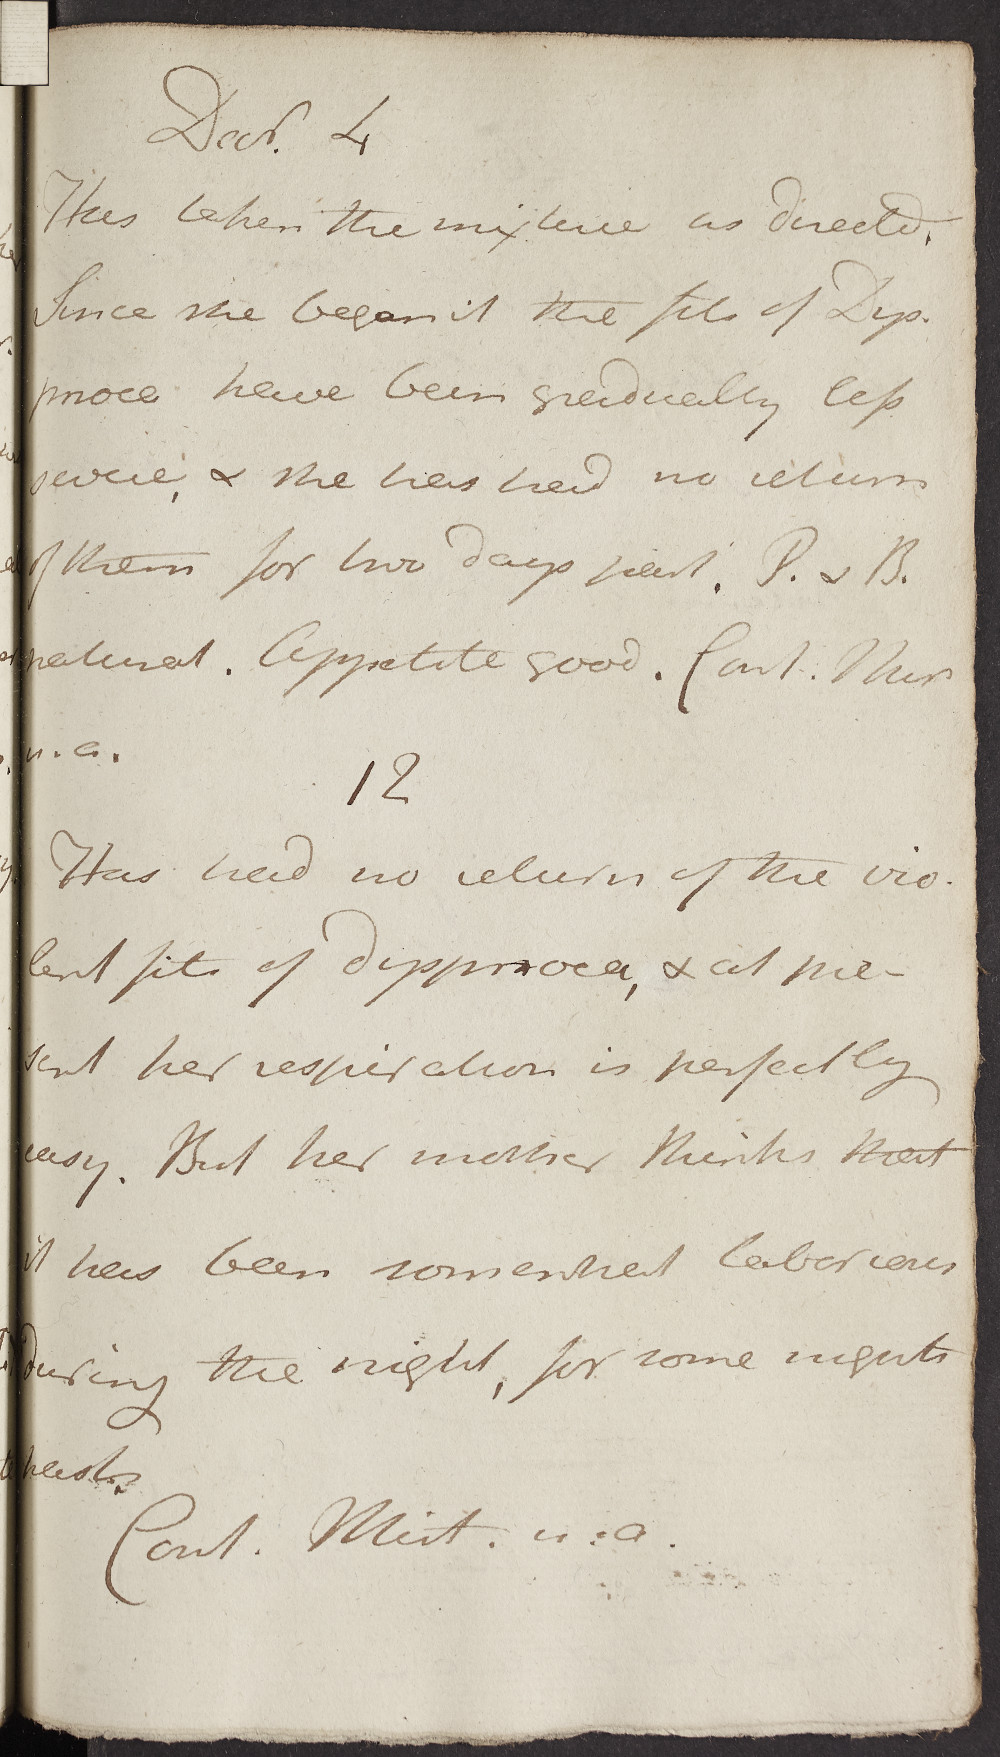 Decr. 4
Has taken the mixture as directed.
Since she began it the fits of Dys-
pnoea have been gradually less
severe, & she has had no return
of them for two days past. P. & B.
natural. Appetite good. Cont. Mist
u.a.
12
Has had no return of the vio-
lent fits of dyspnoea, & at pre-
sent her respiration is perfectly
easy. But her mother thinks that
it has been somewhat laborious
during the night, for some nights
past.
Cont. Mist. u.a.